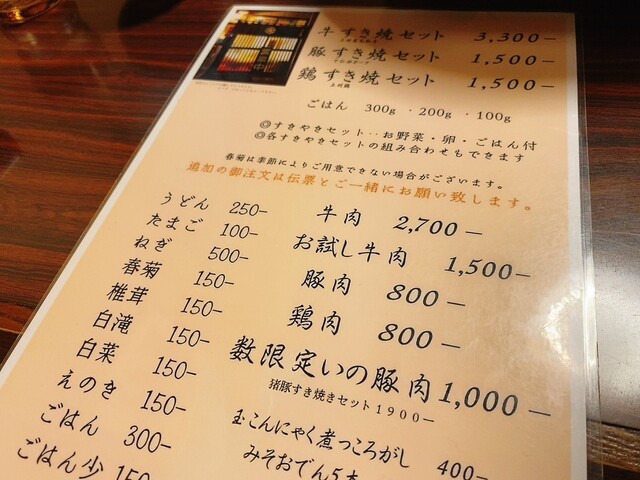 牛すき焼セット 3,300−
豚すき焼セット 1,500−
鶏すき焼セット 1,500−
ごはん 300g ・200g ・100g
◎すきやきセット‥お野菜・卵・ごはん付
◎各すきやきセットの組み合わせもできます
春菊は季節によりご用意できない場合がございます。
追加の御注文は伝票とご一緒にお願い致します。
うどん 250−
たまご 100−
ねぎ 500−
春菊 150−
椎茸 150−
白滝 150−
白菜 150−
えのき 150−
ごはん 300−
ごはん少 150−
牛肉 2,700−
お試し牛肉 1,500−
豚肉 800−
鶏肉 800−
数限定いの豚肉 1,000−
猪豚すき焼きセット1900−
玉こんにゃく煮っころがし 400−
みそおでん5本